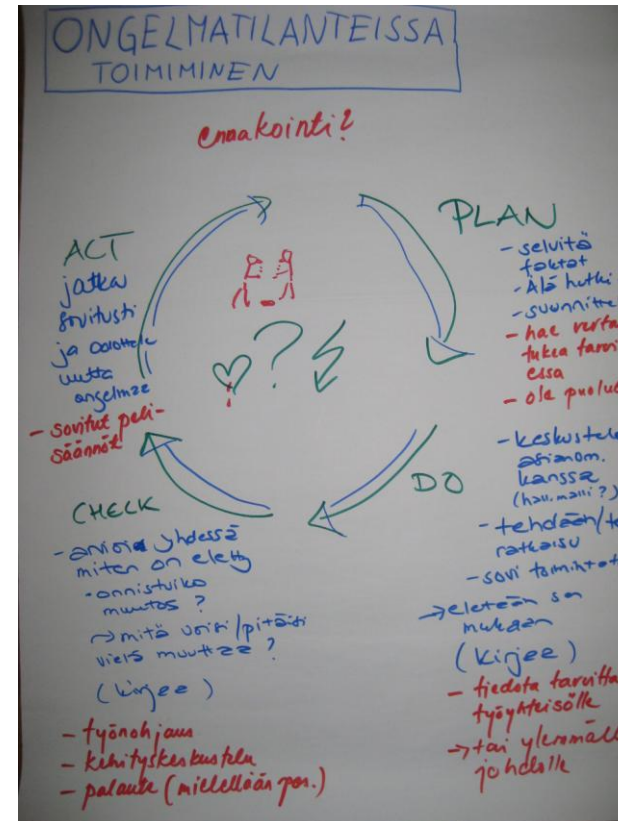 ONGELMATILANTEISSA
TOIMIMINEN
ennakointi?
PLAN
- selvitä
faktat
- Älä hutki
- suunnitte
- hae verta
tukea tarvi
essa
- ole puolu
DO
- keskustele
asianom.
kanssa
(hall.malli?)
- tehdään/t
ratkaisu
- sovi toimintat
→ eletään sen
mukaan
(kirjee)
- tiedota tarvitta
työyhteisölle
→ tai ylemmäll
johdolle
CHECK
- arvioi yhdessä
miten on eletty
- onnistuiko
muutos?
→ mitä voisi/pitäisi
vielä muuttaa?
(kirjee)
- työnohjaus
- kehityskeskustelu
- palaute (mielellään pos.)
ACT
jatka
sovitusti
ja odottele
uutta
ongelmaa
- sovitut peli-
säännöt
?